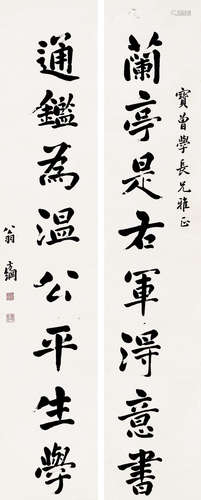 寶曾學長兄雅正
蘭亭是右軍得意書
通鑑為溫公平生學
翁方綱